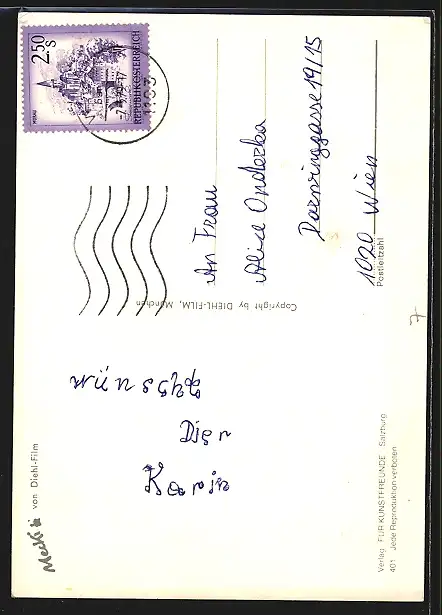 2.50 S
MURAU
REPUBLIK ÖSTERREICH
1103
An Frau
Alice Onderka
Darwinggasse 19/15
1020 Wien
Postleitzahl
Copyright by DIEHL-FILM, München
Dier
Karin
Mecki von Diehl-Film
Verlag FÜR KUNSTFREUNDE Salzburg
401 Jede Reproduktion verboten
7